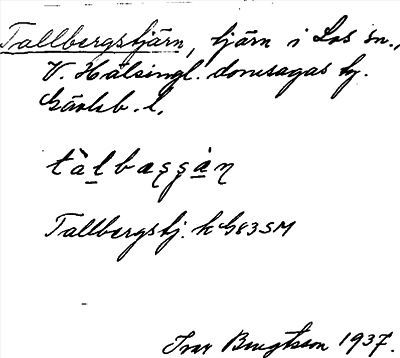 Tallbergstjärn, tjärn i Los sn.,
V. Hälsingl. domsagas tg.
Gävleb. l.
Tallbergstj. k G83SM
Ivar Bengtsson 1937.